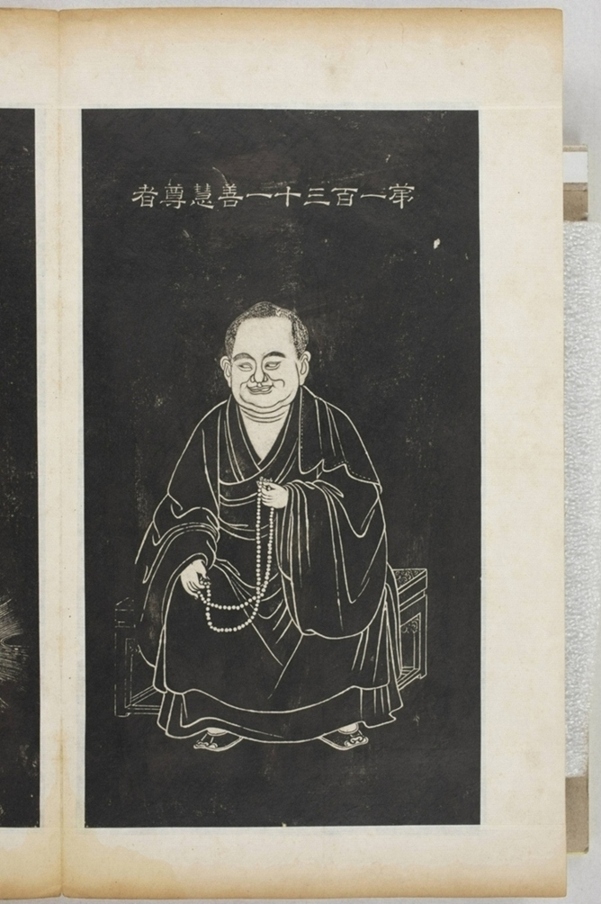 第一百三十一善慧尊者